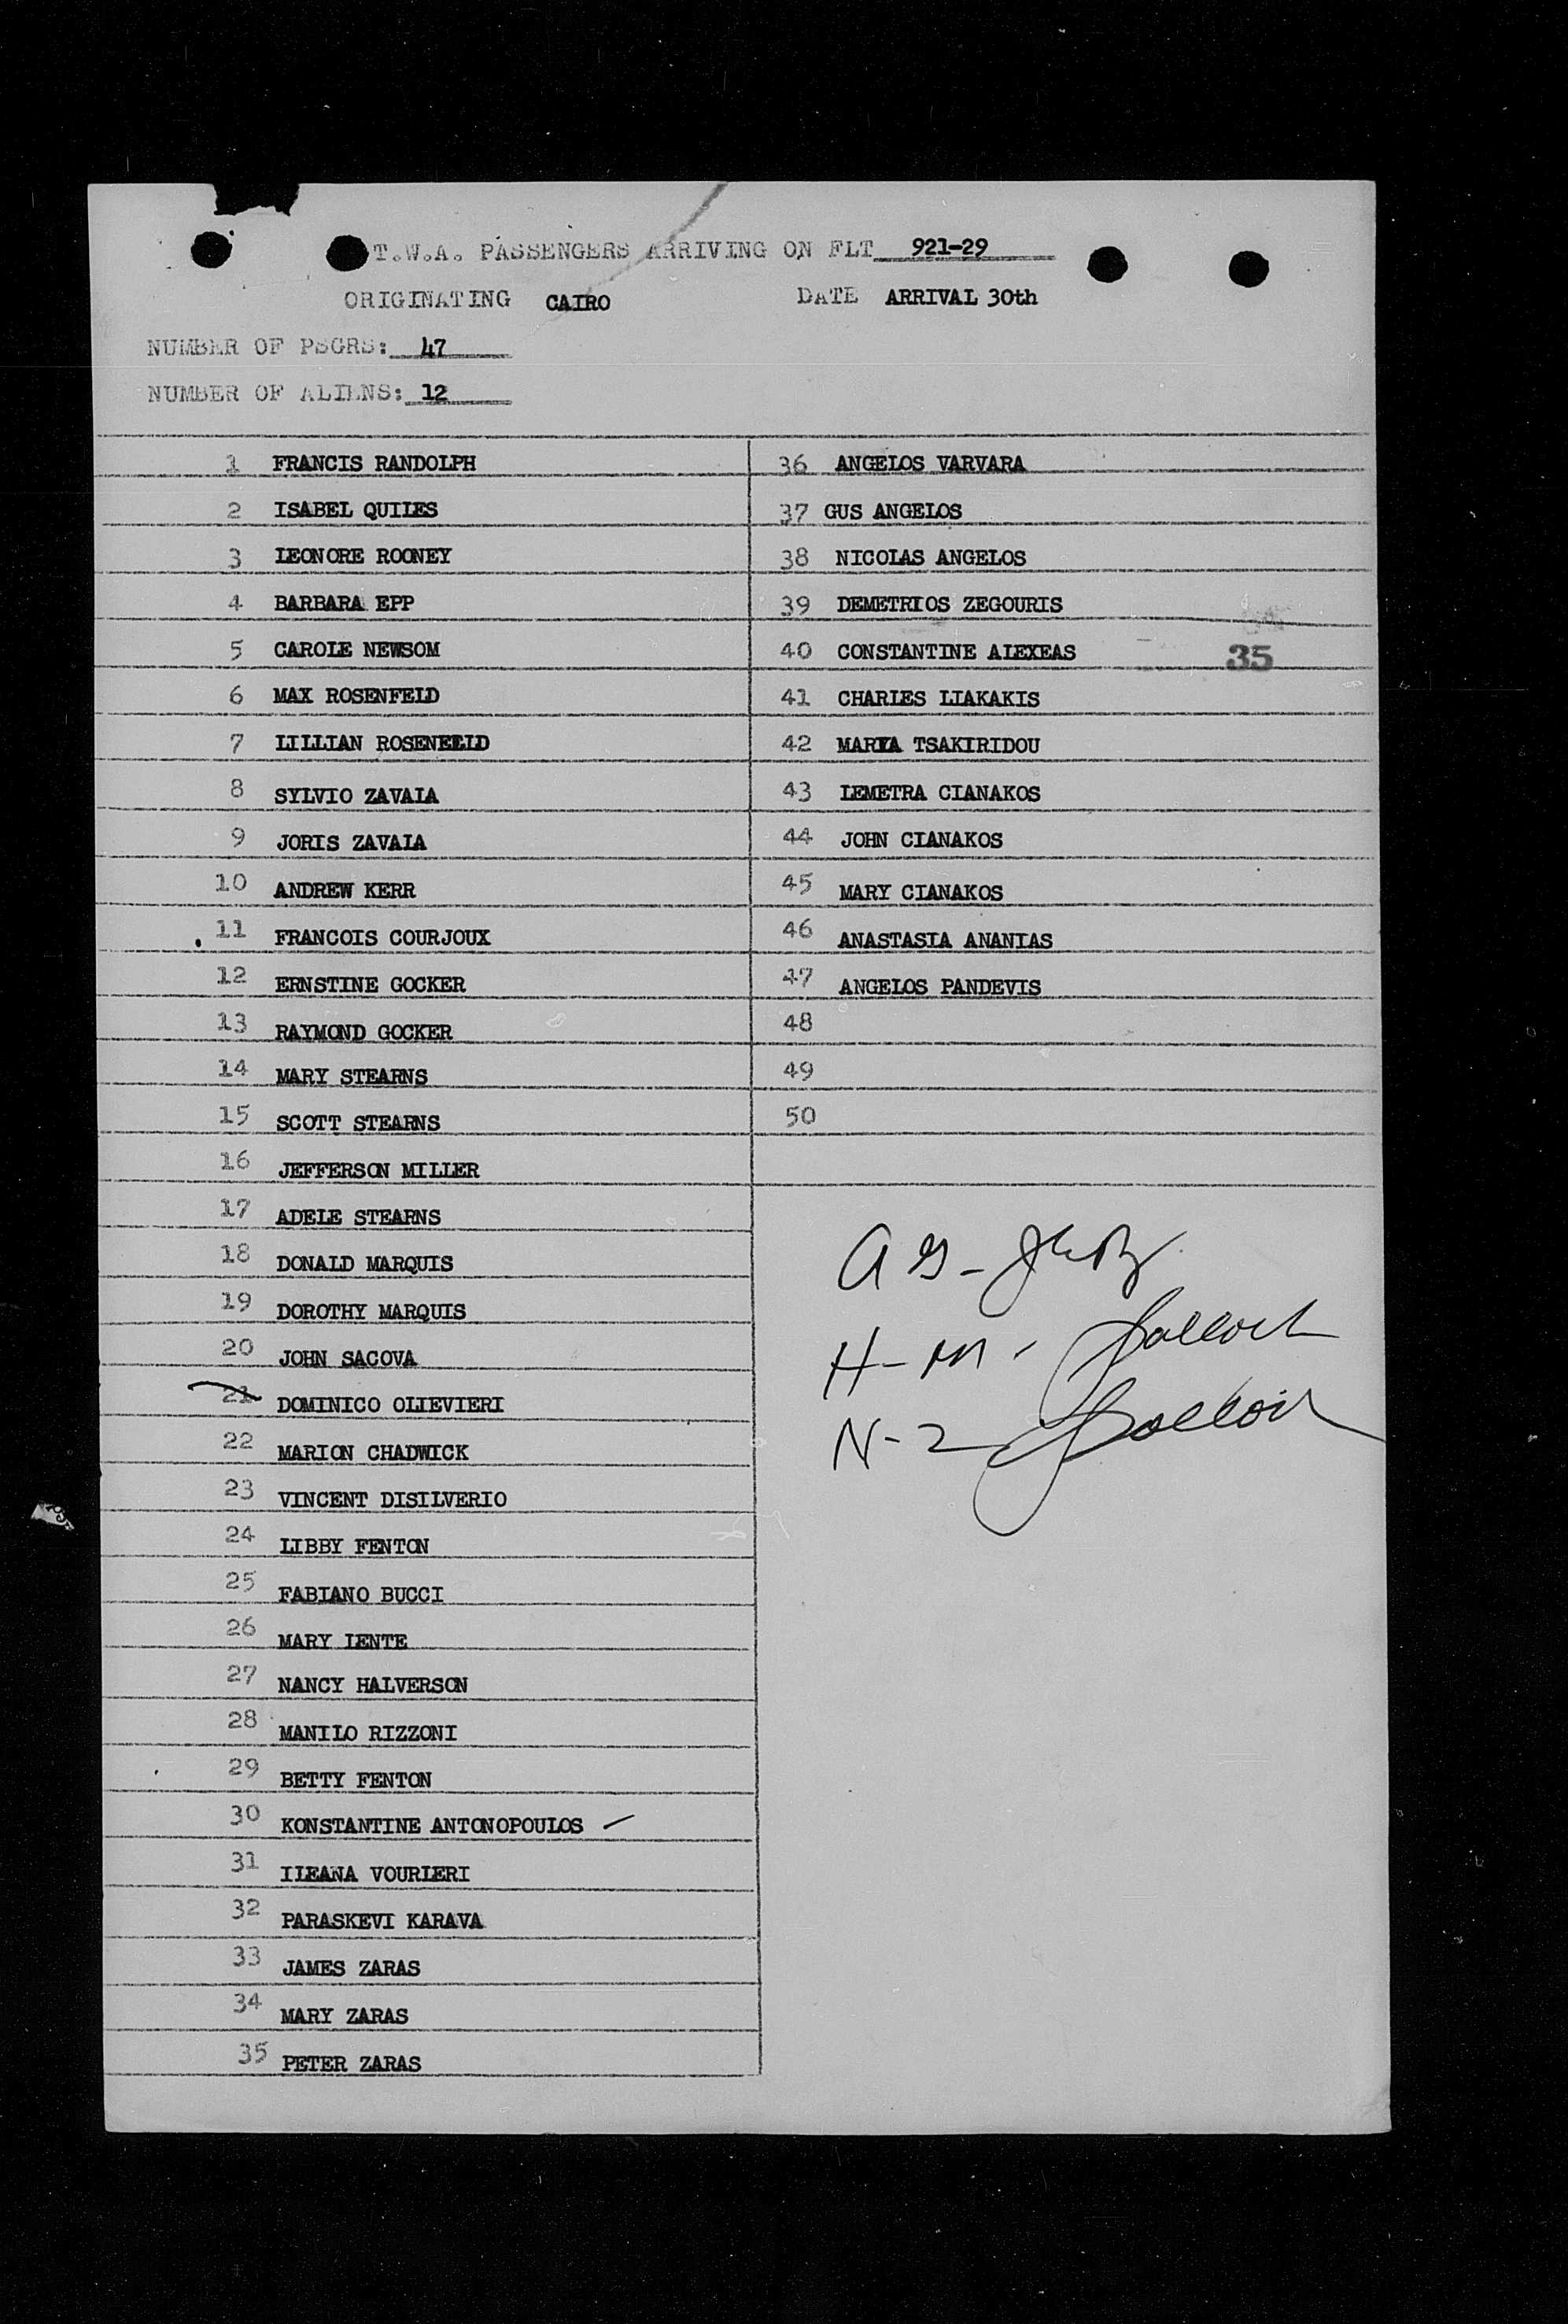 T.W.A. PASSENGERS ARRIVING ON FLT 921-29
ORIGINATING CAIRO DATE ARRIVAL 30th
NUMBER OF PSGRS: 47
NUMBER OF ALIENS: 12
1 FRANCIS RANDOLPH
2 ISABEL QUILES
3 LEONORE ROONEY
4 BARBARA EPP
5 CAROLE NEWSOM
6 MAX ROSENFELD
7 LILLIAN ROSENFELD
8 SYLVIO ZAVALA
9 JORIS ZAVALA
10 ANDREW KERR
11 FRANCOIS COURJOUX
12 ERNSTINE GOCKER
13 RAYMOND GOCKER
14 MARY STEARNS
15 SCOTT STEARNS
16 JEFFERSON MILLER
17 ADELE STEARNS
18 DONALD MARQUIS
19 DOROTHY MARQUIS
20 JOHN SACOVA
21 DOMINICO OLIEVIERI
22 MARION CHADWICK
23 VINCENT DISILVERIO
24 LIBBY FENTON
25 FABIANO BUCCI
26 MARY LENTE
27 NANCY HALVERSON
28 MANILO RIZZONI
29 BETTY FENTON
30 KONSTANTINE ANTONOPOULOS
31 ILEANA VOURLERI
32 PARASKEVI KARAVA
33 JAMES ZARAS
34 MARY ZARAS
35 PETER ZARAS
36 ANGELOS VARVARA
37 GUS ANGELOS
38 NICOLAS ANGELOS
39 DEMETRIOS ZEGOURIS
40 CONSTANTINE ALEXEAS 35
41 CHARLES LIAKAKIS
42 MARIA TSAKIRIDOU
43 LEMETRA CIANAKOS
44 JOHN CIANAKOS
45 MARY CIANAKOS
46 ANASTASIA ANANIAS
47 ANGELOS PANDEVIS
48
49
50
A G -
H - M -
N - 2